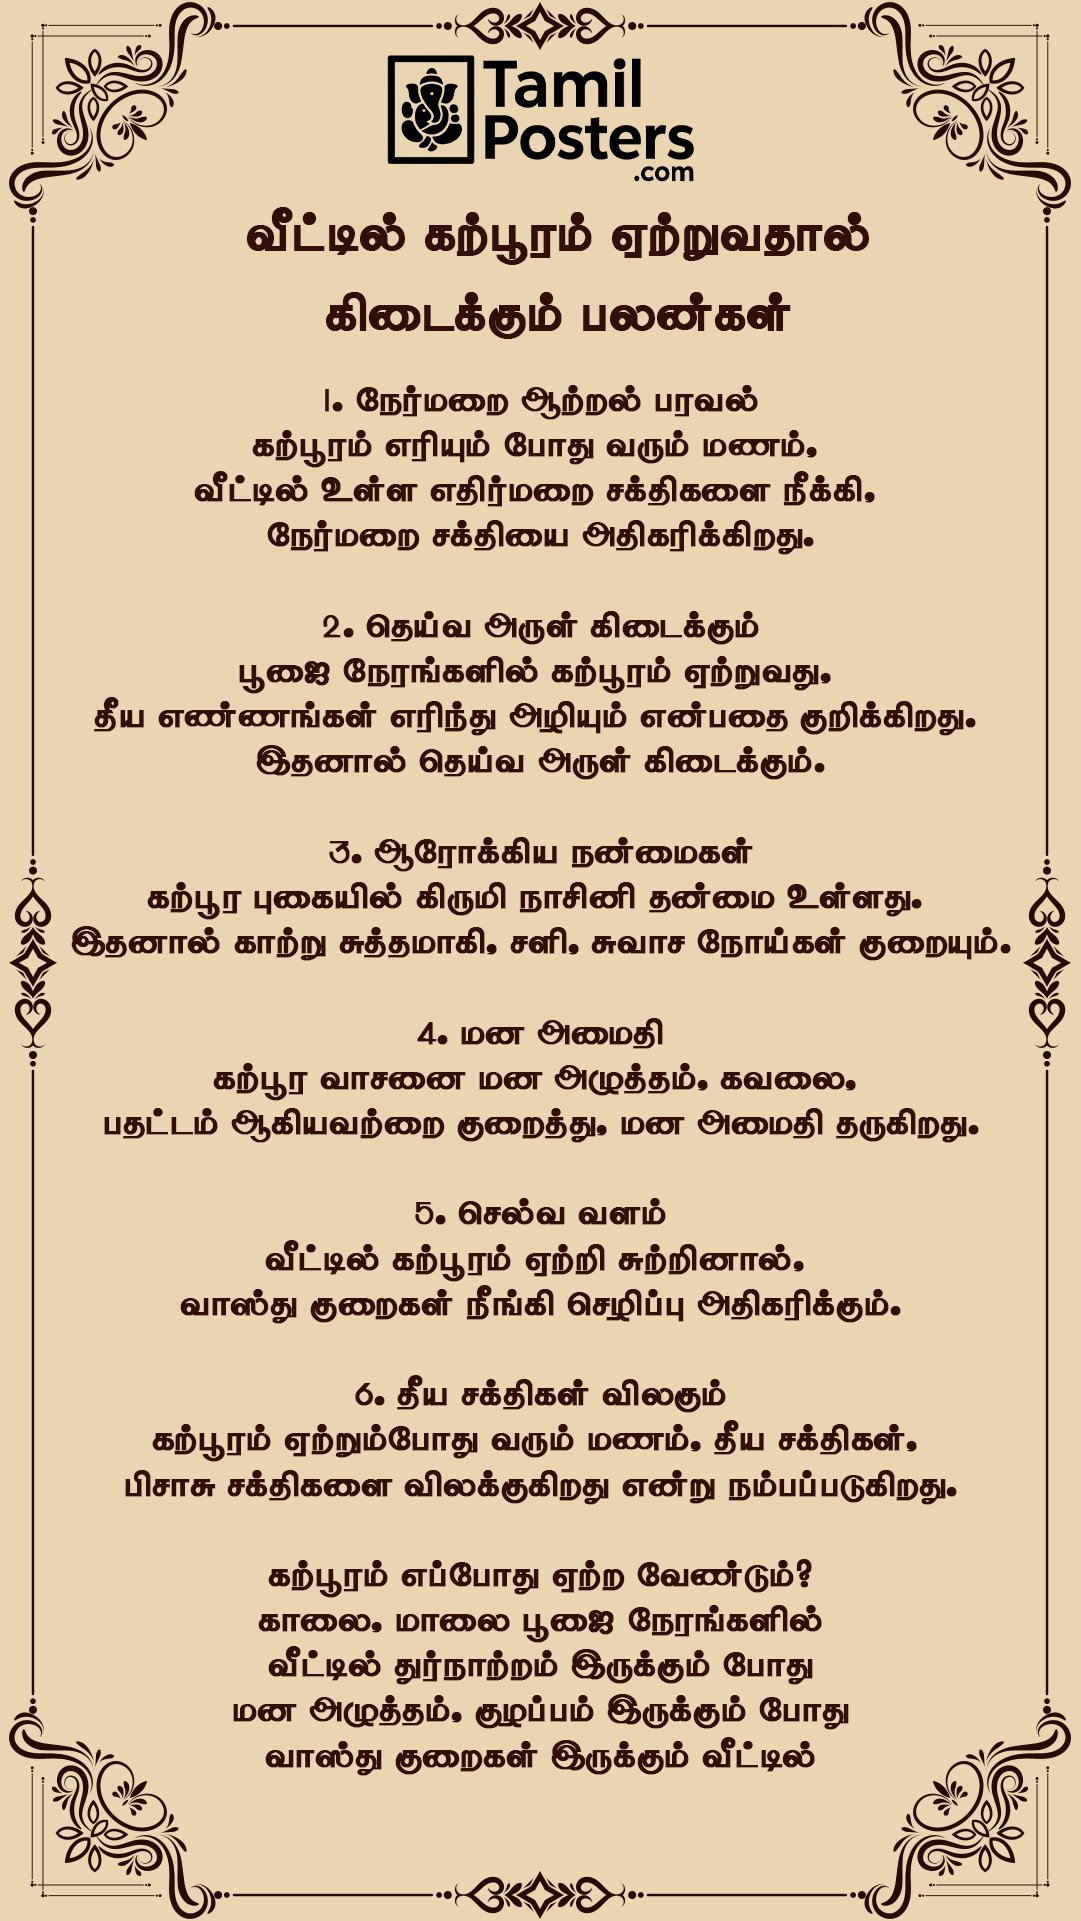 Tamil
Posters
.com
வீட்டில் கற்பூரம் ஏற்றுவதால்
கிடைக்கும் பலண்கள்
1. நேர்மறை ஆற்றல் பரவல்
கற்பூரம் எரியும் போது வரும் மணம்,
வீட்டில் உள்ள எதிர்மறை சக்திகளை நீக்கி,
நேர்மறை சக்தியை அதிகரிக்கிறது.
2. தெய்வ அருள் கிடைக்கும்
பூஜை நேரங்களில் கற்பூரம் ஏற்றுவது,
தீய எண்ணங்கள் எரிந்து அழியும் என்பதை குறிக்கிறது.
இதனால் தெய்வ அருள் கிடைக்கும்.
3. ஆரோக்கிய நன்மைகள்
கற்பூர புகையில் கிருமி நாசினி தன்மை உள்ளது.
இதனால் காற்று சுத்தமாகி, சளி, சுவாச நோய்கள் குறையும்.
4. மன அமைதி
கற்பூர வாசனை மன அழுத்தம், கவலை,
பதட்டம் ஆகியவற்றை குறைத்து, மன அமைதி தருகிறது.
5. செல்வ வளம்
வீட்டில் கற்பூரம் ஏற்றி சுற்றினால்,
வாஸ்து குறைகள் நீங்கி செழிப்பு அதிகரிக்கும்.
6. தீய சக்திகள் விலகும்
கற்பூரம் ஏற்றும்போது வரும் மணம், தீய சக்திகள்,
பிசாசு சக்திகளை விலக்குகிறது என்று நம்பப்படுகிறது.
கற்பூரம் எப்போது ஏற்ற வேண்டும்?
காலை, மாலை பூஜை நேரங்களில்
வீட்டில் துர்நாற்றம் இருக்கும் போது
மன அழுத்தம், குழப்பம் இருக்கும் போது
வாஸ்து குறைகள் இருக்கும் வீட்டில்